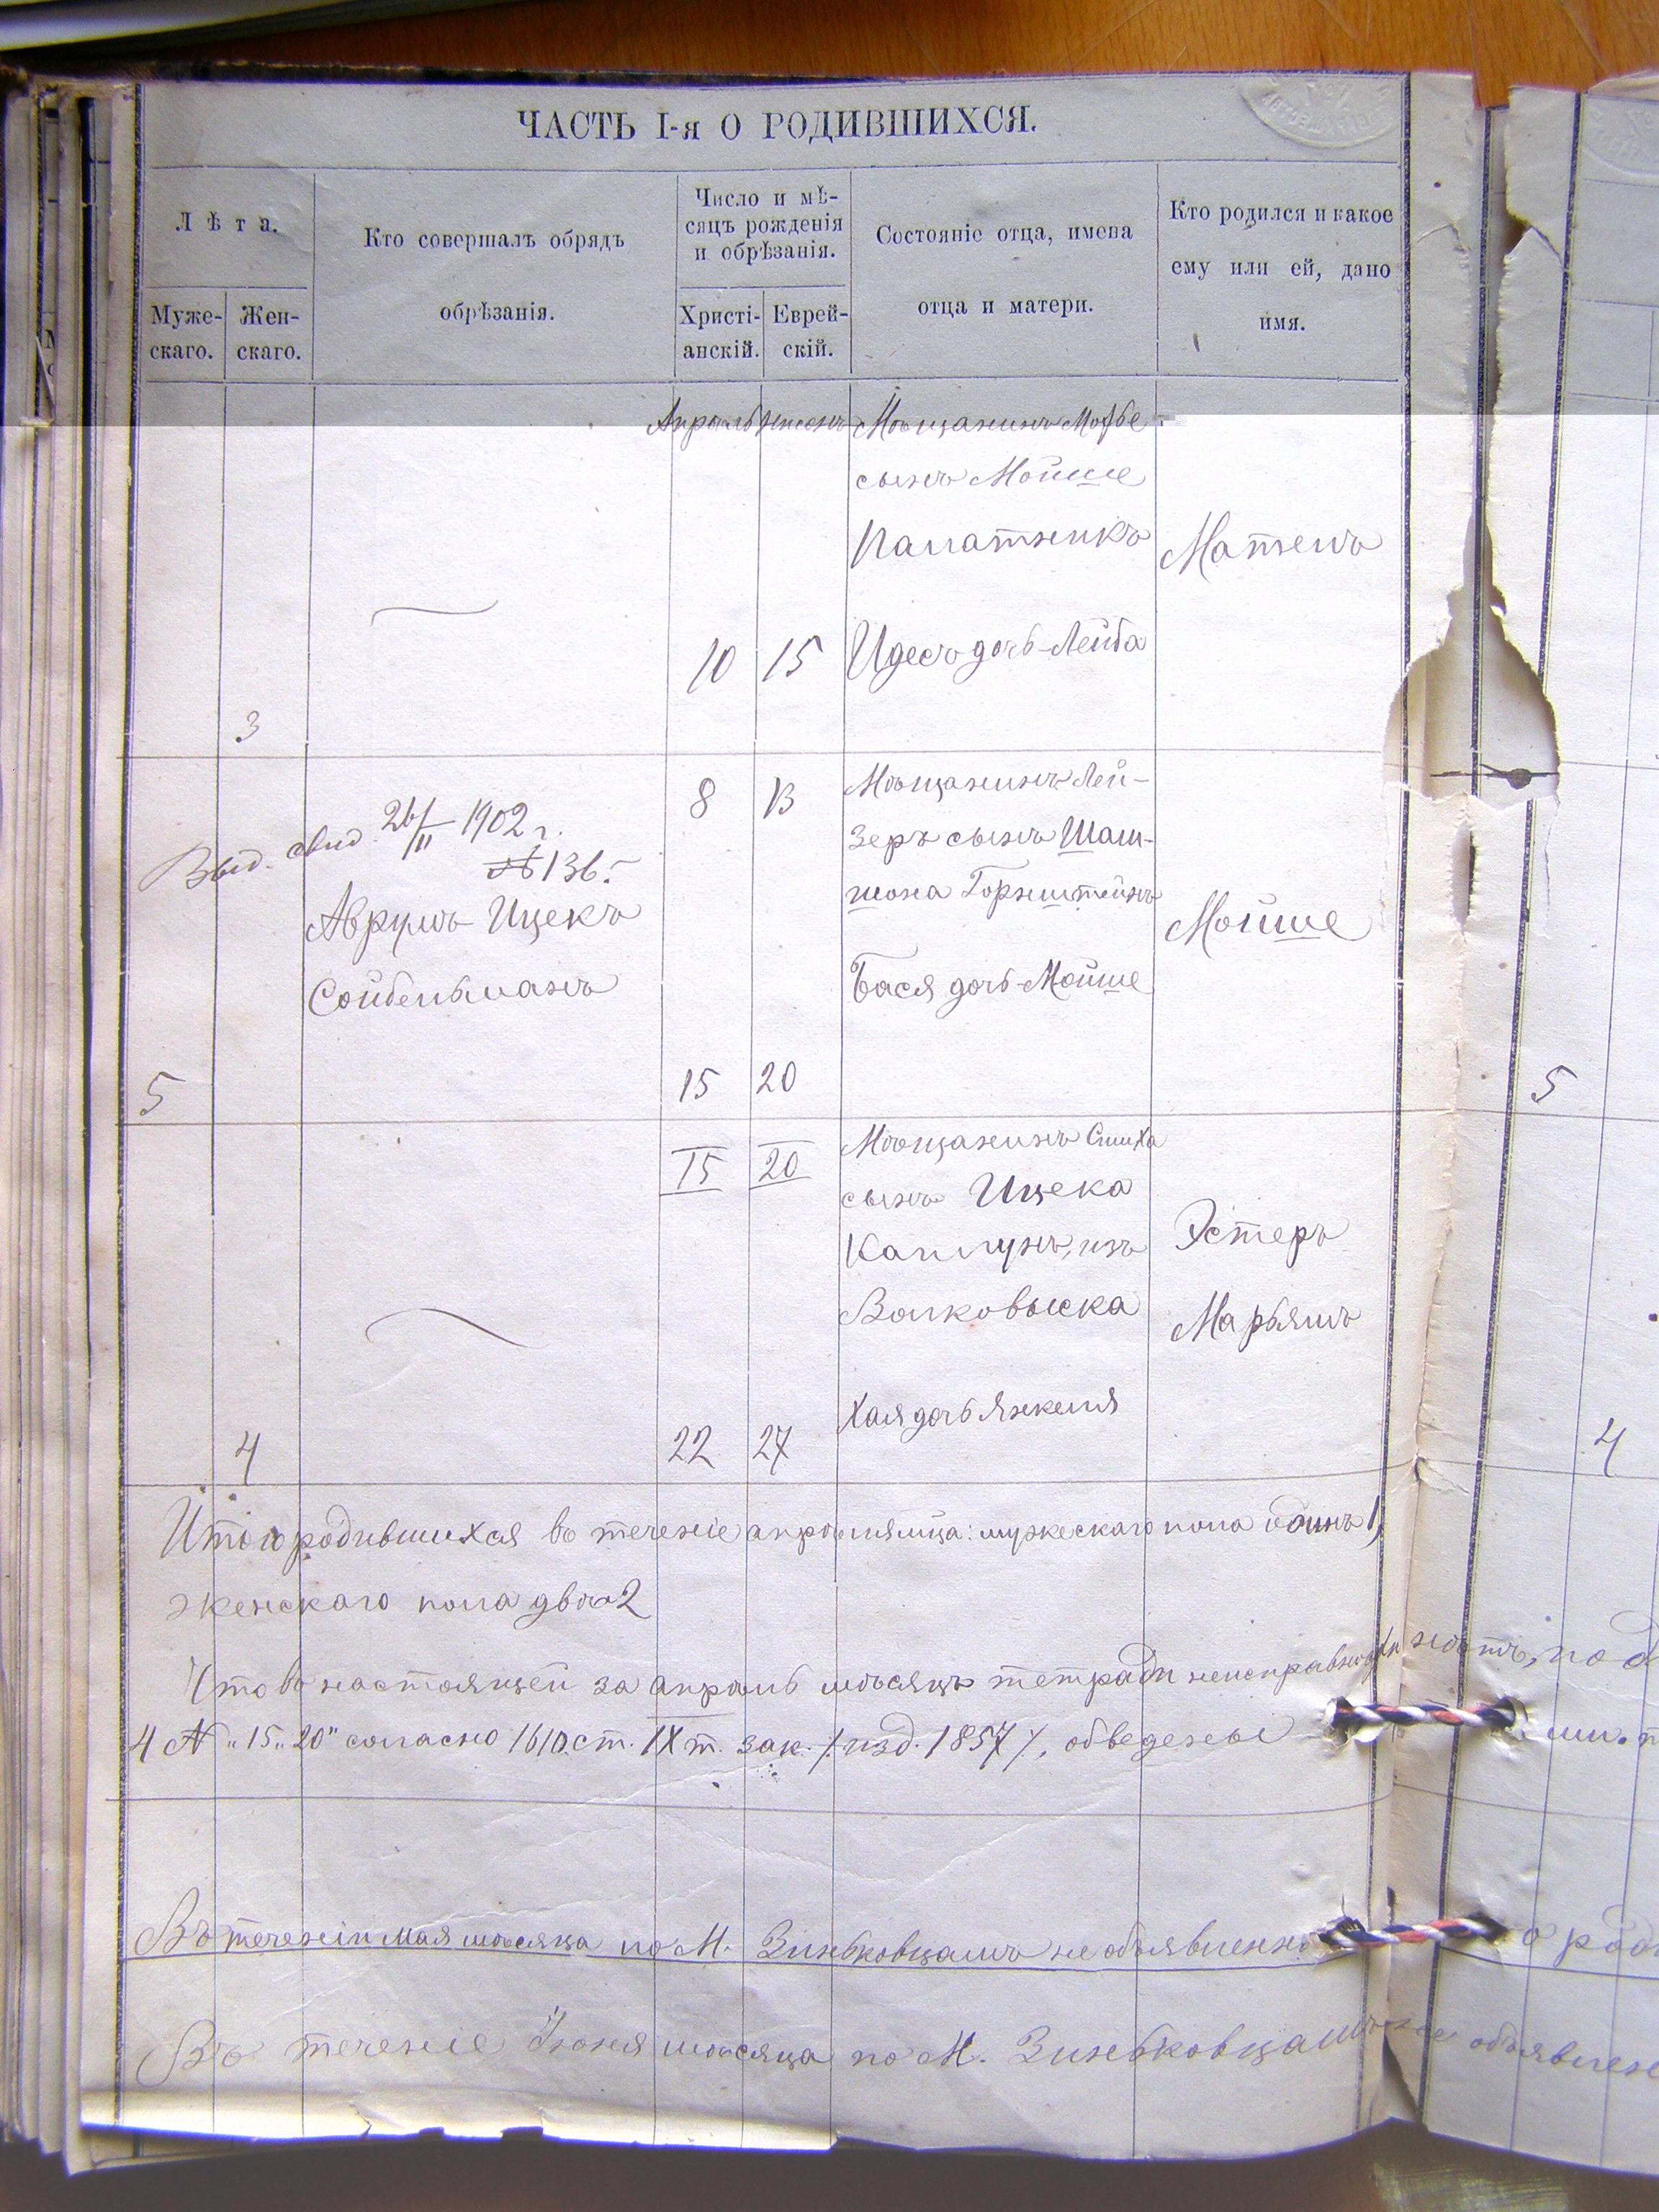 ЧАСТЬ I-я О РОДИВШИХСЯ.
Лѣта.
Муже-
скаго.
Жен-
скаго.
Кто совершалъ обрядъ
обрѣзанія.
Число и мѣ-
сяцъ рожденія
и обрѣзанія.
Христі-
анскій.
Еврей-
скій.
Состояніе отца, имена
отца и матери.
Кто родился и какое
ему или ей, дано
имя.
Апрѣль
Мѣщанинъ
сынъ Мойше
Палатникъ
Идесъ дочь Лейба
10 15
3
8 13
Мѣщанинъ Лей-
зеръ сынъ Шам-
шона Горнштейнъ
Бася дочь Мойше
Мойше
Выд. свид. 26/II 1902 г.
№ 136.
Аврумъ Ицекъ
Сойбельманъ
5
15 20
5
15 20
Мѣщанинъ Симха
сынъ Ицека
Каплунъ, изъ
Волковыска
Хая дочь Янкеля
Эстеръ
Марьямъ
4
22 27
4
Итого родившихся въ теченіе апрѣля м-ца: мужескаго пола одинъ 1,
женскаго пола двѣ 2
Что въ настоящей за апрѣль мѣсяцъ тетради неисправностей нѣтъ, под
4 № „15„ 20" согласно 1610 ст. IX т. зак. /изд. 1857/, обведены
Въ теченіи мая мѣсяца по м. Зиньковцамъ не объявленно о роди
Въ теченіе Іюня мѣсяца по м. Зиньковцамъ не объявлен